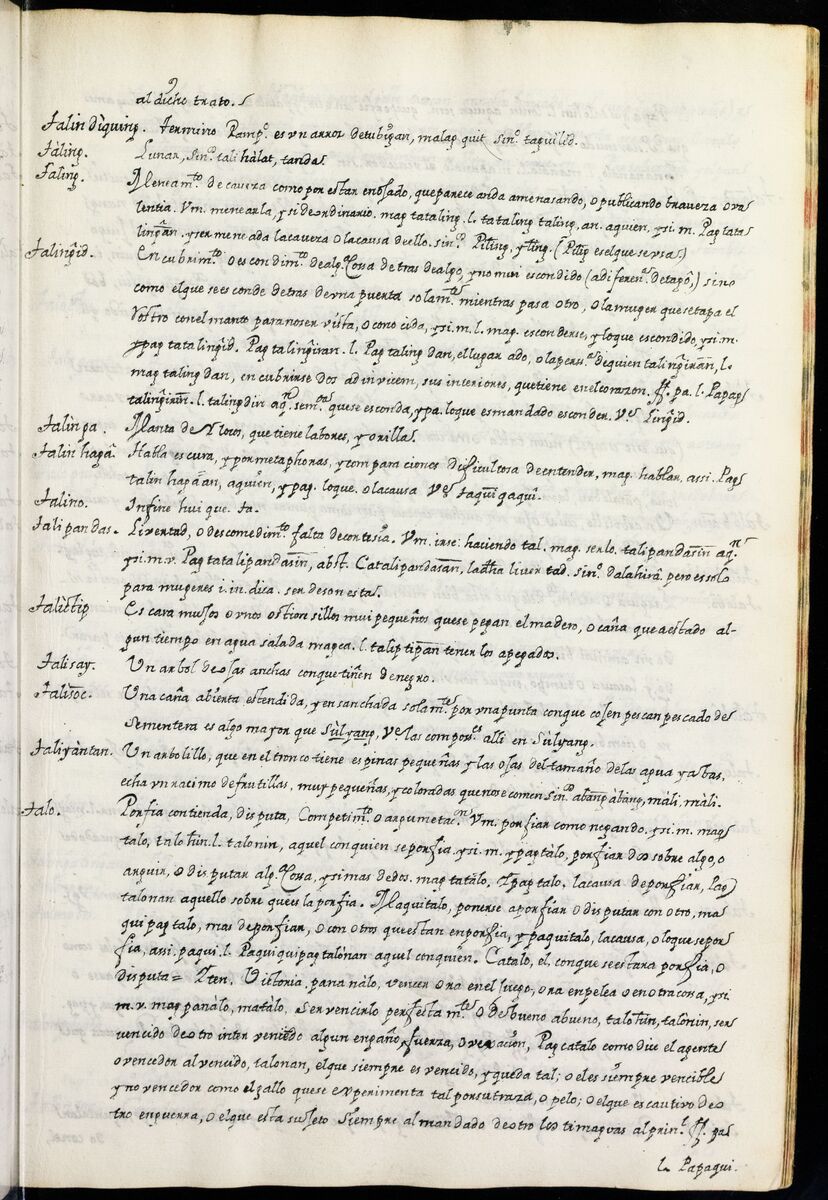 al dicho trato.
talin dìquinḡ. termino Pamp.º es vn arroz detubigan, malag quit sin.º taquilid.
tàlinḡ. Lunar, sin.º tali hàlat, tanda.
taling. Meneam.to de caveza como por estar enojado, que parece anda amenasando, o publicando traveza o va
lentia. Vm. menearla, y si de ordinario. mag tataling. l. tataling taling, an. aquien, ysi. m. Pag tata
linḡan. y ser meneada la caveza o la causa de ello. sin.º Piling, y ling. (Piling es el que se vsa)
talingid. Encubrim.to o escondim.to de alg.ª Cossa detras de algo, y no mui escondido (a diferen.ª de tapó,) sino
como el que se esconde detras de vna puerta solam.te mientras pasa otro, o la muger que se tapa el
Rostro con el manto para no ser vista, o cono cida, ysi. m. l. mag. esconderse, y lo que escondido, ysi. m.
y pag tatalingid. Pag talingiran. l. Pag taling dan, el lugar ado, o la pers.ª de quien talingiran, l.
mag taling dan, en cubrirse dos ad in vicem, sus interiores, que tiene en el corazon. ff. pa. l. Papag
talingirin. l. talingdin aq.n sem.ta que se esconda, y pa. lo que es mandado esconder. Ve. Lingid.
talin pa. Manta de Ylocos, que tiene labores, y orilla.
talin hagà. Habla escura, y por metaphoras, y compara ciones dificultosa de entender, mag. hablar. assi. Pag
talin hagàan, aquien, y pag. loque. o la causa Ve
talino. Infine hui que. ta.
tali pandas. Livertad, o descomedim.to falta de cortesia. Vm. irse haciendo tal. mag. serlo. talipandasin aq.n
ysi. m. v. Pag tatalipandasin, abst. Catalipandasan, ladha liver tad. sin.º dalahirà. pero es solo
para mugeres i. in. dica. ser desonesta.
talìctip Es cara mujos o vnos ostion sillos mui pequeños que se pegan el madero, o caña que aestado al-
gun tiempo en agua salada magca. l. taliptipan tener los apegados.
talisay. Un arbol de ojas anchas conque tiñen de negro.
talisoc. Una caña abierta estendida, y ensanchada solam.te por vna punta con que cojen pescan pescado de
Sementera es algo mayor que Sùlyang, Ve las compos.es alli en Sùlyang.
taliyàntan. Un arbolillo, que en el tronco tiene espinas pequeñas y las ojas del tamaño de las aguayabas,
echa vn racimo de frutillas, muy pequeñas, y coloradas que no se comen sin.º abang àbang, màli. màli.
talo. Porfia contienda, disputa, Competim.to o argumetac.n Vm. porfiar como negando. ysi. m. mag
tálo, talohin. l. talonin, aquel con quien se porfia. ysi. m. y pag tàlo, porfiar dos sobre algo, o
arguir, o disputar alg.ª Cossa, y si mas de dos. mag tatàlo, Ypag talo. la causa de porfiar, Pag
talonan aquello sobre que es la porfia. Maquitalo, ponerse aporfiar o disputar con otro, ma
qui pag talo, mas de porfiar, o con otros que estan enporfia, y paquitalo, la causa, o lo que se por
fia, assi. paqui. l. Paquiquipagtalonan aquel con quien. Catalo, el. con que se esta ra porfia, o
disputa= Yten. Victoria, para nàlo, vencer o ra en el juego, o ra en pelea o en otra cosa, ysi.
m. v. mag panàlo, matàlo, ser vencirlo perfecta m.te o de bueno abueno, talohin, talonin, ser
vencido de otro inter veniedo algun engaño, fuerza, o vexacion, Pag catalo como dice el agente
o vencedor al vencido, talonan, el que siempre es vencido, y queda tal; o el es siempre vencible
y no vencedor como el gallo que se experimenta tal por su traza, o pelo; o el que es cautivo de o
tro en guerra, o el que esta sujeto siempre al mandado de otro los timaguas al prin.l ff. pa
l. Papaqui.